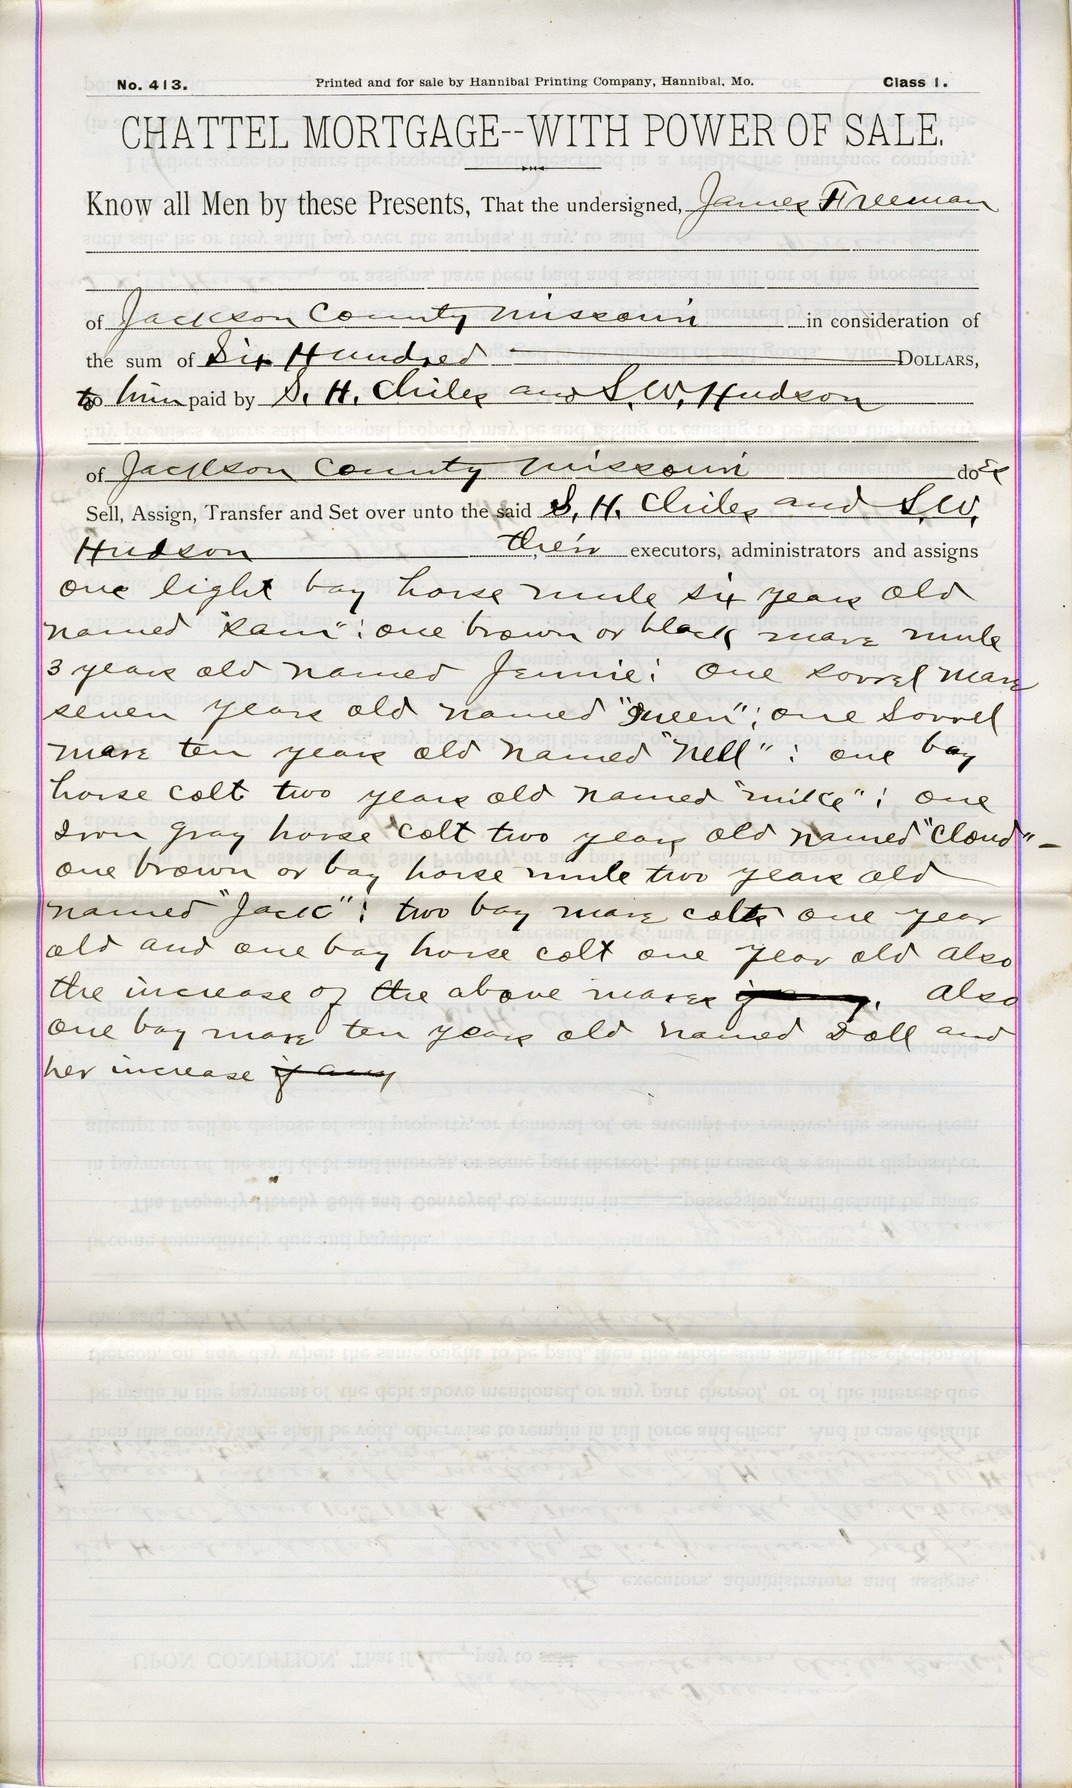 No. 413. Printed and for sale by Hannibal Printing Company, Hannibal, Mo. Class 1.
CHATTEL MORTGAGE--WITH POWER OF SALE.
Know all Men by these Presents, That the undersigned, James Freeman
of Jackson County Missouri in consideration of
the sum of Six Hundred DOLLARS,
to him paid by S. H. Chiles and S. W. Hudson
of Jackson County Missouri does
Sell, Assign, Transfer and Set over unto the said S. H. Chiles and S. W.
Hudson their executors, administrators and assigns
one light bay horse mule six years old
named "Sam"; one brown or black mare mule
3 years old named Jennie; One sorrel mare
seven years old named "Queen"; one Sorrel
mare ten years old named "Nell"; one bay
horse colt two years old named "mike"; one
Iron gray horse colt two years old named "Cloud" -
one brown or bay horse mule two years old
named "Jack"; two bay mare colts one year
old and one bay horse colt one year old also
the increase of the above mares if any. also
one bay mare ten years old named Doll and
her increase if any